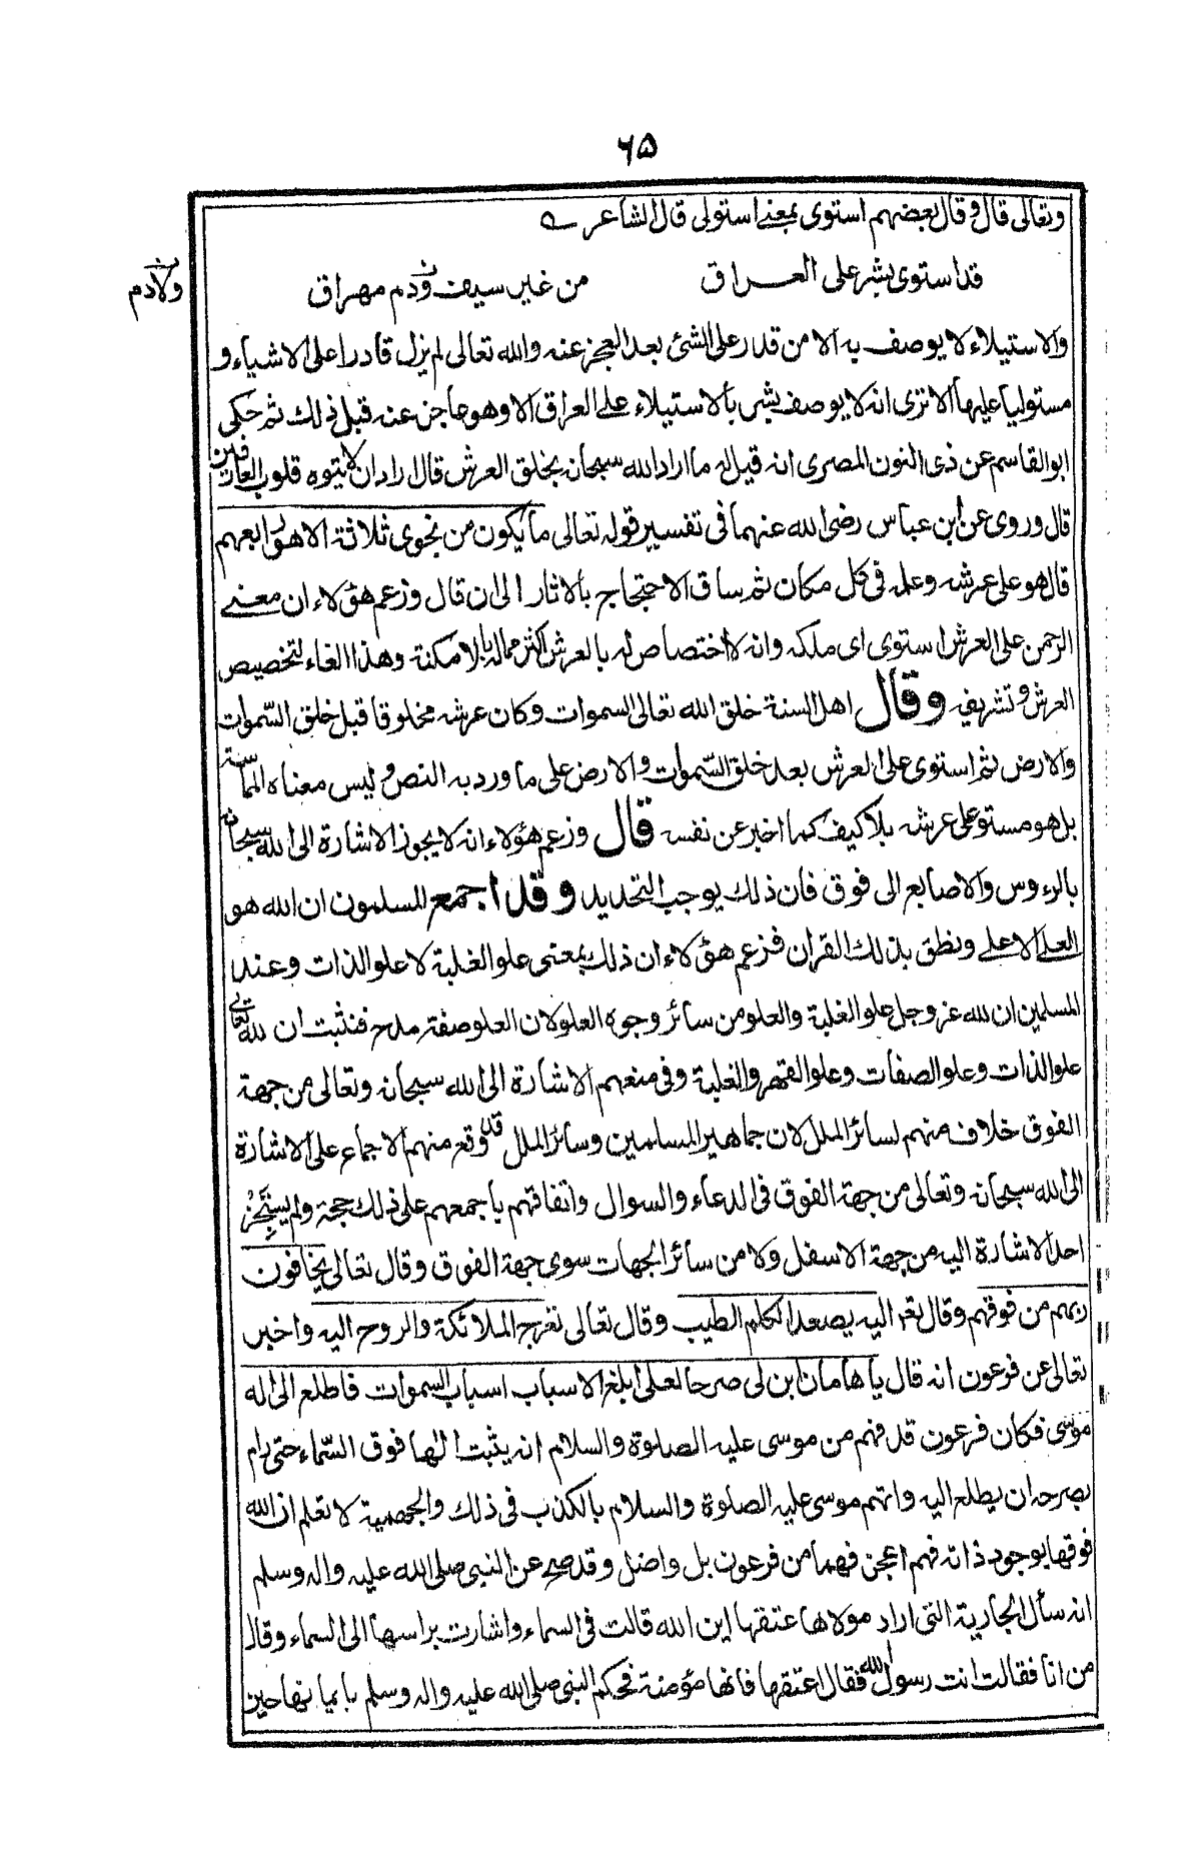 ٦٥
وتعالى قال وقال بعضهم استوى بمعنے استولى قال الشاعر ے
قد استوى بشر على العراق من غير سيف ودم مهراق
ولادم
والاستيلاء لا يوصف به الا من قدر على الشئ بعد العجز عنه والله تعالى لم يزل قادرا على الاشياء و
مستوليا عليها الا ترى انه لا يوصف بشر بالاستيلاء على العراق الا وهو عاجز عنه قبل ذلك ثم حكى
ابو القاسم عن ذى النون المصرى انه قيل له ما اراد الله سبحانه بخلق العرش قال اراد ان لا يتوه قلوب العارفين
قال وروى عن ابن عباس رضى الله عنهما فى تفسير قوله تعالى ما يكون من نجوى ثلاثة الا هو رابعهم
قال هو على عرشه وعلمه فى كل مكان ثم ساق الاحتجاج بالاثار الى ان قال وزعم هؤلاء ان معنے
الرحمن على العرش استوى اى ملكه وانه لا اختصاص له بالعرش اكثر مما له بالامكنة وهذا الغاء لتخصيص
العرش وتشريفه وقال اهل السنة خلق الله تعالى السموات وكان عرشه مخلوقا قبل خلق السّموات
والارض ثم استوى على العرش بعد خلق السّموات والارض على ما ورد به النص وليس معناه المماسة
بل هو مستو على عرشه بلا كيف كما اخبر عن نفسه قال وزعم هؤلاء انه لا يجوز الاشارة الى الله سبحانه
بالرءوس والاصابع الى فوق فان ذلك يوجب التحديد وقد اجمع المسلمون ان الله هو
العلے الاعلے ونطق بذلك القران فزعم هؤلاء ان ذلك بمعنى علو الغلبة لا علو الذات وعند
المسلمين ان لله عز وجل علو الغلبة والعلو من سائر وجوه العلو لان العلو صفة مدح فنثبت ان لله تعالى
علو الذات وعلو الصفات وعلو القهر والغلبة وفى منعهم الاشارة الى الله سبحانه وتعالى من جهة
الفوق خلاف منهم لسائر الملل لان جماهير المسلمين وسائر الملل قد وقع منهم الاجماع على الاشارة
الى الله سبحانه وتعالى من جهة الفوق فى الدعاء والسوال واتفاقهم باجمعهم على ذلك حجة ولم يستجز
احد الاشارة اليه من جهة الاسفل ولا من سائر الجهات سوى جهة الفوق وقال تعالى يخافون
ربهم من فوقهم وقال تعم اليه يصعد الكلم الطيب وقال تعالى تعرج الملائكة والروح اليه واخبر
تعالى عن فرعون انه قال يا هامان ابن لى صرحا لعلى ابلغ الاسباب اسباب السموات فاطلع الى اله
موسى فكان فرعون قد فهم من موسى عليه الصلوة والسلام انه يثبت الها فوق السّماء حتى رام
بصرحه ان يطلع اليه واتهم موسى عليه الصلوة والسلام بالكذب فى ذلك والجهمية لا تعلم ان الله
فوقها بوجود ذاته فهم اعجز فهما من فرعون بل واضل وقد صح عن النبى صلى الله عليه واله وسلم
انه سأل الجارية التى اراد مولاها عتقها اين الله قالت فى السماء واشارت براسها الى السماء وقال
من انا فقالت انت رسول الله فقال اعتقها فانها مؤمنة فحكم النبى صلى الله عليه واله وسلم بايمانها حين